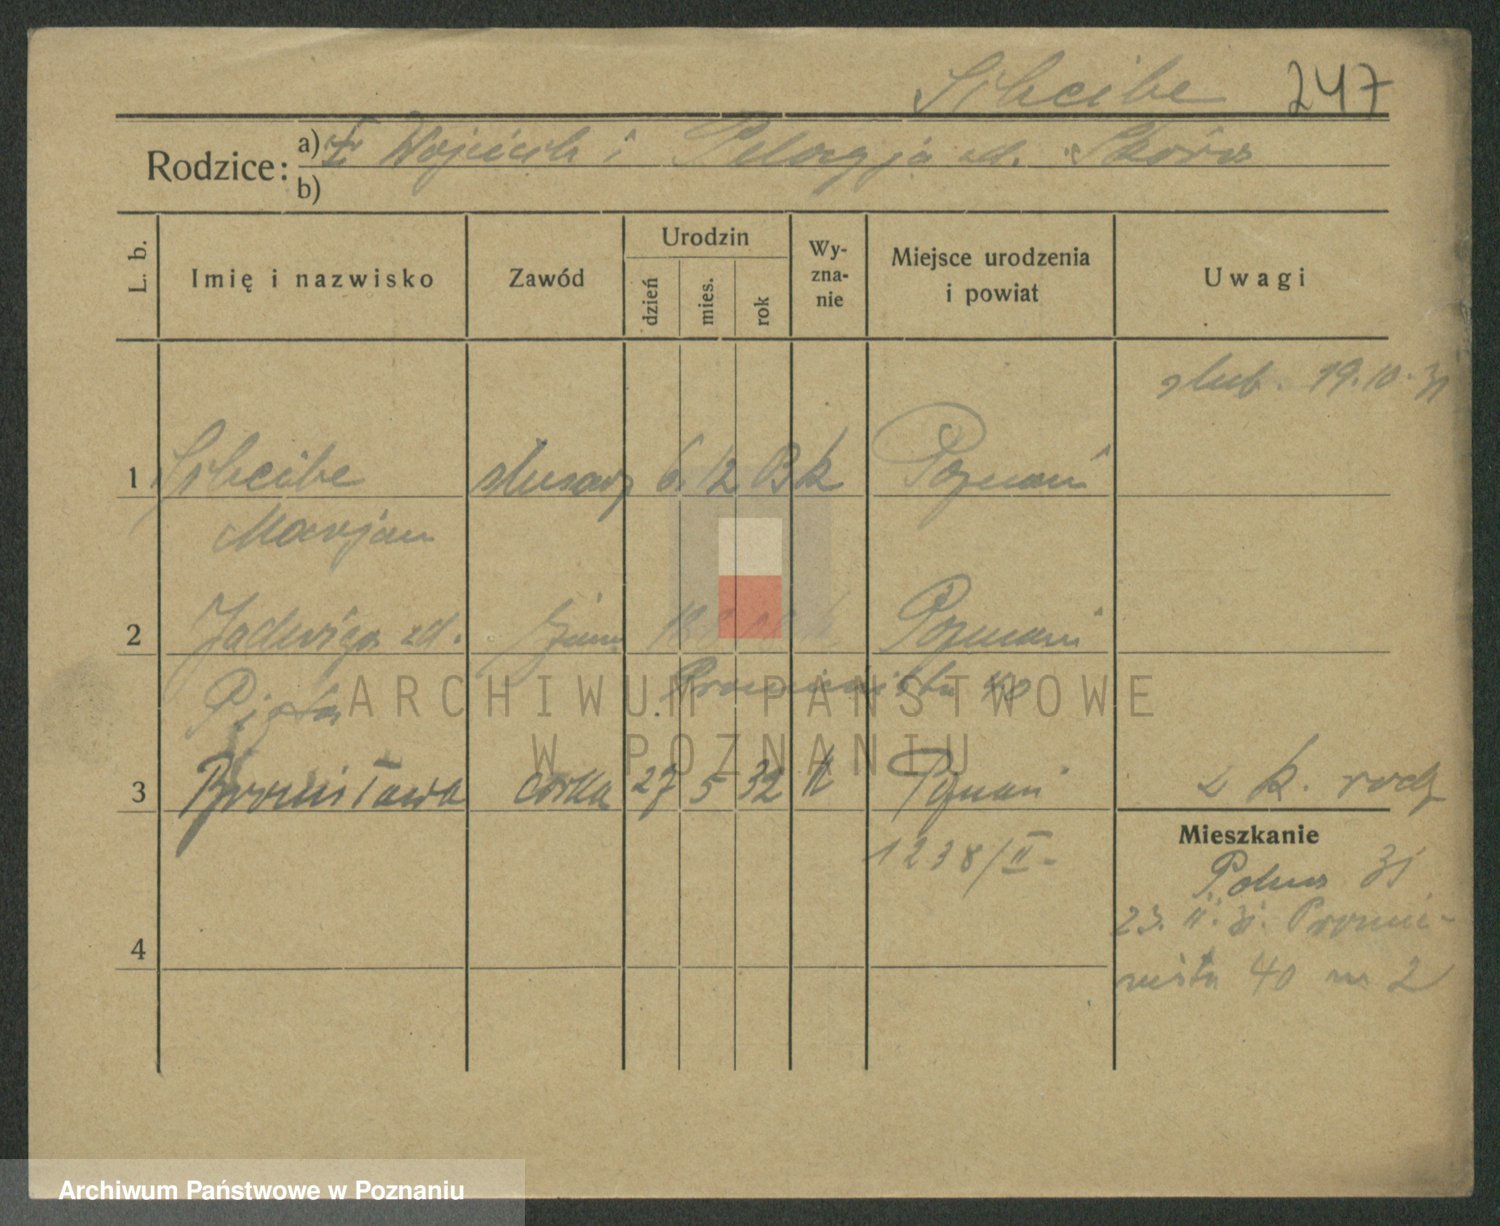 Scheibe 247
Rodzice:
a) Wojciech i Pelagja zd. Skóra
b)
L. b.
Imię i nazwisko
Zawód
Urodzin
dzień
mies.
rok
Wy-
zna-
nie
Miejsce urodzenia
i powiat
Uwagi
ślub. 19.10.31
1 Scheibe ślusarz 6 12 03 k Poznań
Marjan
2 Jadwiga zd. Poznań
Pięta
40
3 Bronisława córka 27 5 32 k Poznań
z k. rodz
1238/II-
Mieszkanie
Polna 31
23. II. 31. Promie-
nista 40 m 2
4
ARCHIWUM PAŃSTWOWE
W POZNANIU
Archiwum Państwowe w Poznaniu